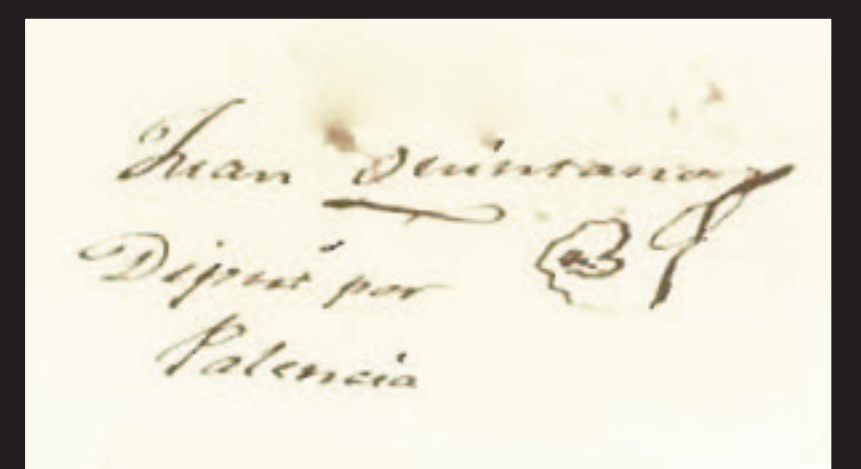 Juan Quintano
Diput por
Palencia